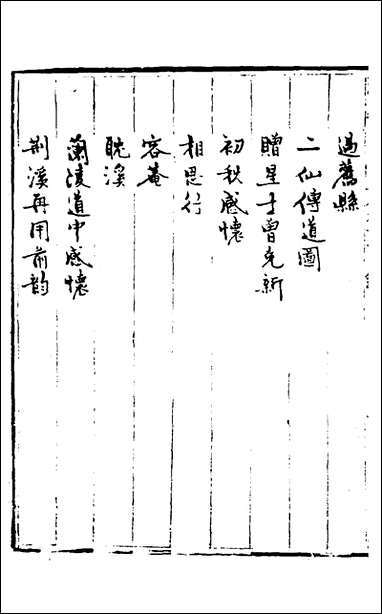 過舊縣
二仙傳道圖
贈星士曾克新
初秋感懷
相思行
容菴
耽溪
蘭陵道中感懷
荆溪再用前韵